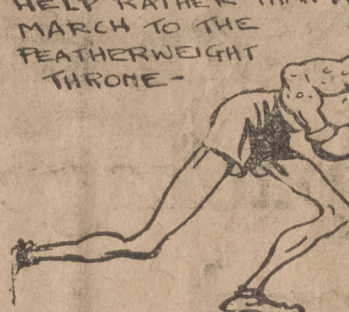 HELP RATHER THAN
MARCH TO THE
FEATHERWEIGHT
THRONE-